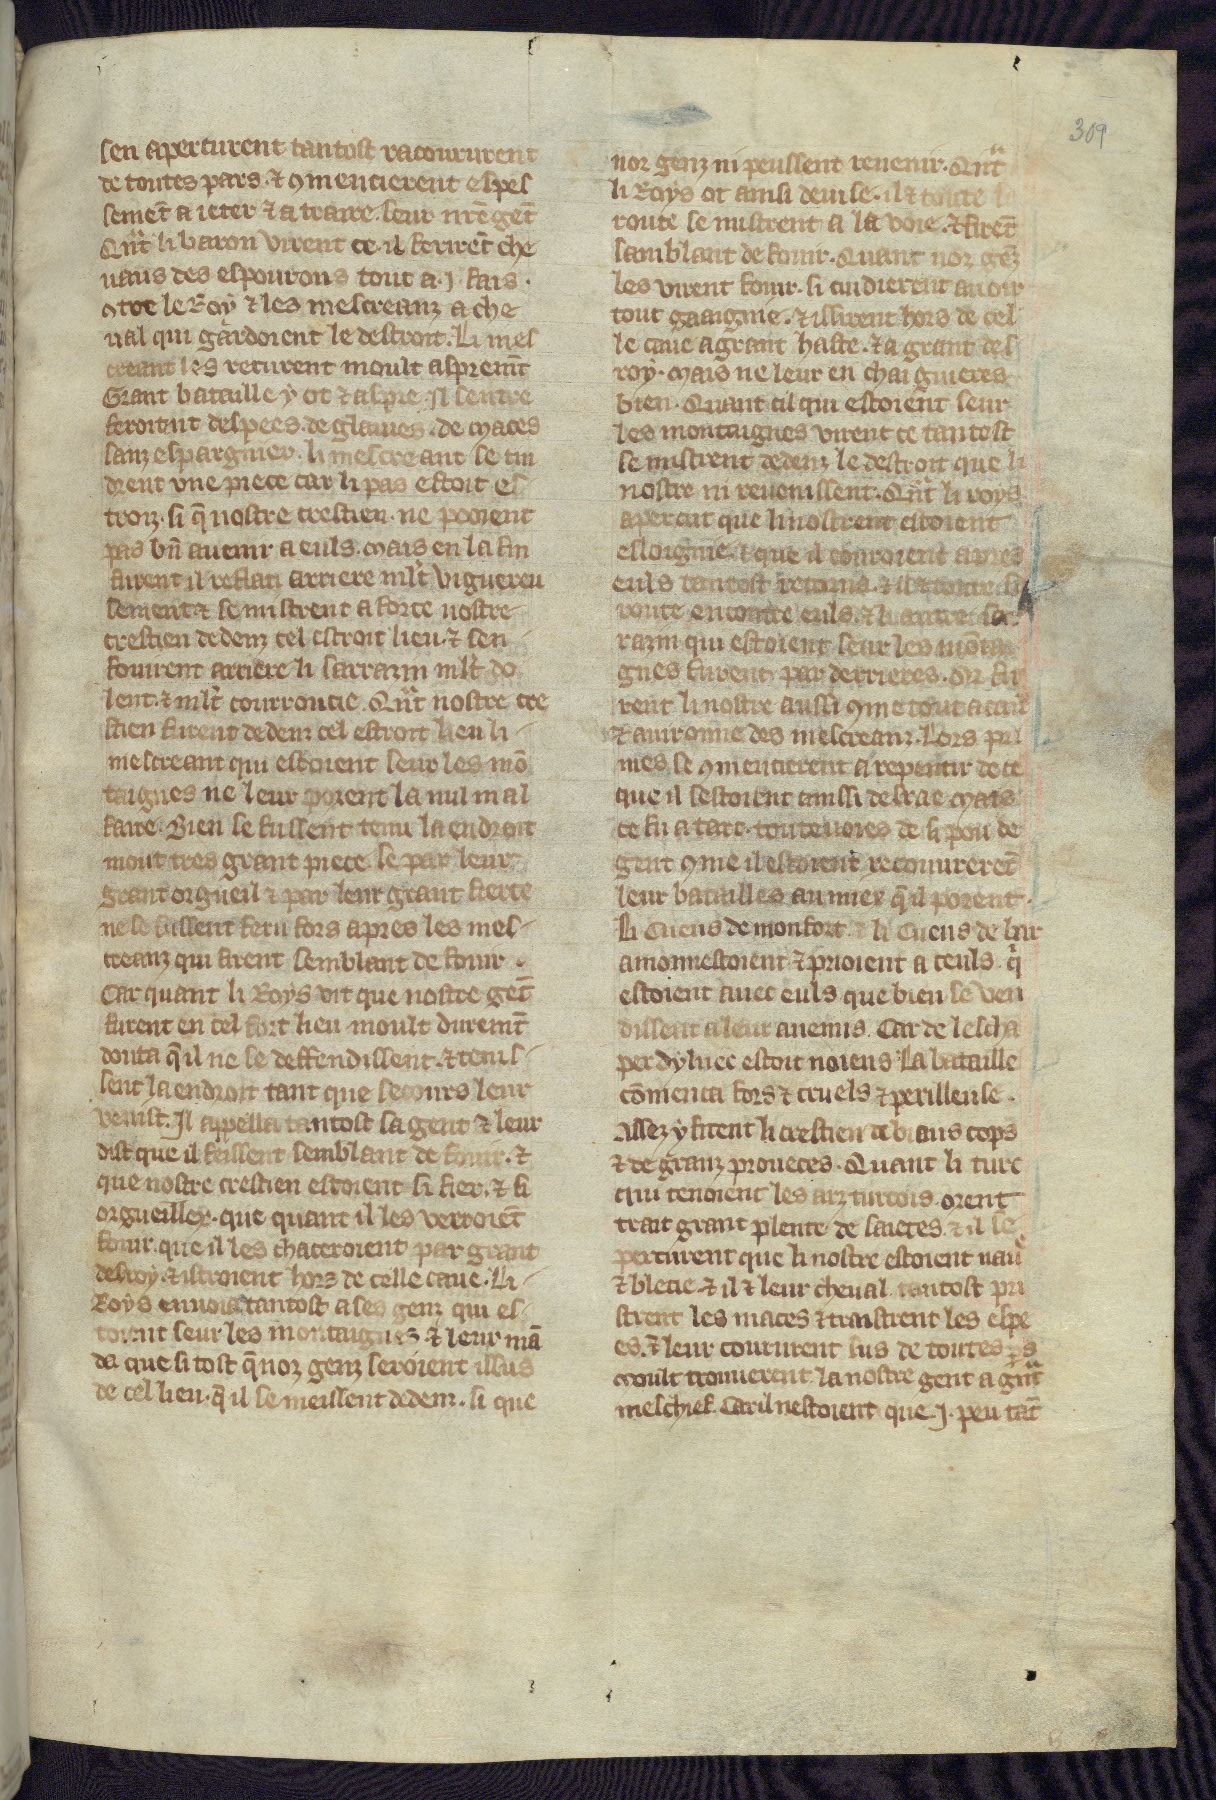 309
sen aperturent tantost racoururent
de toutes pars. ⁊ ꝯmencierent espes
semēt a ieter ⁊ a traire. seur nr̄e gēt
Qn̄t li baron virent ce. il ferirēt che
uaus des espourons tout a .j. fais.
ꝯtre le Roy ⁊ les mescreanz a che
ual qui gardoient le destroit. Li mes
creant les recurent moult asprem̄t
Grant bataille y ot ⁊ aspre. Il sentre
feroient despees. de glaiues. de maces
sanz espargnier. li mescreant se tin
drent vne piece car li pas estoit es
troiz. si q̄ nostre crestien. ne pooient
pas bn̄ auenir a euls. mais en la fin
furent il reslati arriere ml̄t viguereu
sement ⁊ se mistrent a force nostre
crestien dedenz cel estroit lieu. ⁊ sen
fouirent arriere li sarrazin ml̄t do
lent. ⁊ ml̄t courroucie. Qn̄t nostre cre
stien furent dedenz cel estroit lieu li
mescreant qui estoient seur les mō
taignes ne leur porent la nul mal
faire. Bien se fussent tenu la endroit
mout tres grant piece. se par leur
grant orgueil ⁊ par leur grant fierte
ne se fussent feru fors apres les mes
creanz qui firent semblant de fouir.
Car quant li Roys vit que nostre gēt
furent en cel fort lieu moult durem̄t
douta q̄ il ne se deffendissent. ⁊ tenis
sent la endroit tant que secours leur
venist. Il appella tantost sa gent ⁊ leur
dist que il feissent semblant de fouir. ⁊
que nostre crestien estoient si fier. ⁊ si
orgueillex. que quant il les verroiēt
fouir. que il les chaceroient par grant
desroy. ⁊ istroient hors de celle caue. Li
Roys enuoia tantost a ses genz qui es
toient seur les montaignes ⁊ leur mā
da que si tost q̄ noz genz seroient issus
de cel lieu. q̄ il se meissent dedenz. si que
noz genz ni peussent reuenir. Qn̄t
li Roys ot ainsi deuise. il ⁊ toute
route se mistrent a la voie. ⁊ firēt
samblant de fouir. Quant noz gēz
les virent fouir. si cuidierent auoir
tout gaaignie. ⁊ issirent hors de cel
le caue a grant haste. ⁊ a grant des
roy. mais ne leur en chai gnieres
bien. Quant cil qui estoient seur
les montaignes virent ce tantost
se mistrent dedenz le destroit que li
nostre ni reuenissent. Qn̄t li roys
apercut que li nostrent estoient
esloignie. ⁊ que il couroient apres
euls tantost retorna. ⁊ il ⁊ toute sa
route encontre euls. ⁊ li autre sar
razin qui estoient seur les mōtai
gnes furent par derrieres. Or fu
rent li nostre aussi ꝯme tout
⁊ auironne des mescreanz. Lors pri
mes se ꝯmencierent a repentir de ce
que il sestoient ainssi desrae mais
ce fu a tart. toutes uoies de si pou de
gent ꝯme il estoient recouurerēt
leur batailles au miex q̄ il porent.
Li Cuens de monfort. ⁊ li Cuens de bar
amonnestoient ⁊ prioient a ceuls. q̄
estoient auec euls que bien se ven
dissent a leur anemis. Car de lescha
per dyluec estoit noiens. La bataille
cōmenca fors ⁊ cruels ⁊ perilleuse.
Assez y firent li crestien de biaus cops
⁊ de granz proueces. Quant li turc
qui tenoient les arz turcois. orent
trait grant plente de saietes. ⁊ il se
percurent que li nostre estoient naure
⁊ blecie. ⁊ il ⁊ leur cheual. tantost pri
strent les maces ⁊ traistrent les espe
es. ⁊ leur coururent sus de toutes pars
moult trouuerent la nostre gent a gn̄t
meschief. Car il nestoient que .j. peu tāt